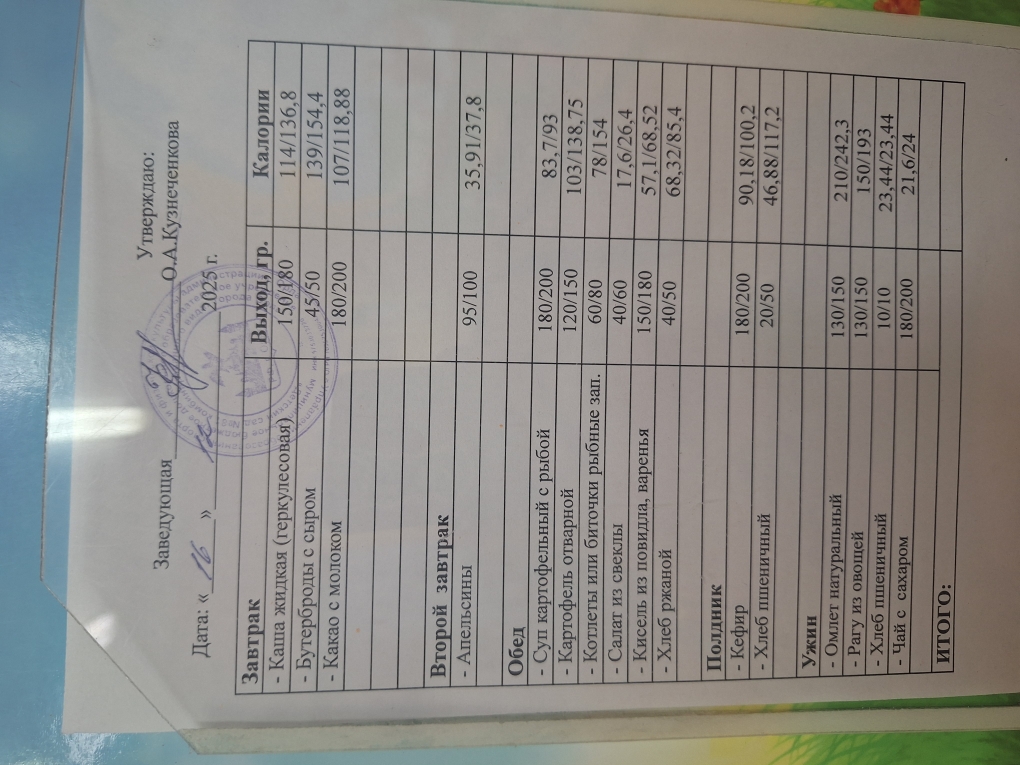 Утверждаю:
Заведующая О.А.Кузнеченкова
Дата: « 16 » 12 2025 г.
Завтрак Выход, гр. Калории
- Каша жидкая (геркулесовая) 150/180 114/136,8
- Бутерброды с сыром 45/50 139/154,4
- Какао с молоком 180/200 107/118,88
Второй завтрак
- Апельсины 95/100 35,91/37,8
Обед
- Суп картофельный с рыбой 180/200 83,7/93
- Картофель отварной 120/150 103/138,75
- Котлеты или биточки рыбные зап. 60/80 78/154
- Салат из свеклы 40/60 17,6/26,4
- Кисель из повидла, варенья 150/180 57,1/68,52
- Хлеб ржаной 40/50 68,32/85,4
Полдник
- Кефир 180/200 90,18/100,2
- Хлеб пшеничный 20/50 46,88/117,2
Ужин
- Омлет натуральный 130/150 210/242,3
- Рагу из овощей 130/150 150/193
- Хлеб пшеничный 10/10 23,44/23,44
- Чай с сахаром 180/200 21,6/24
ИТОГО: